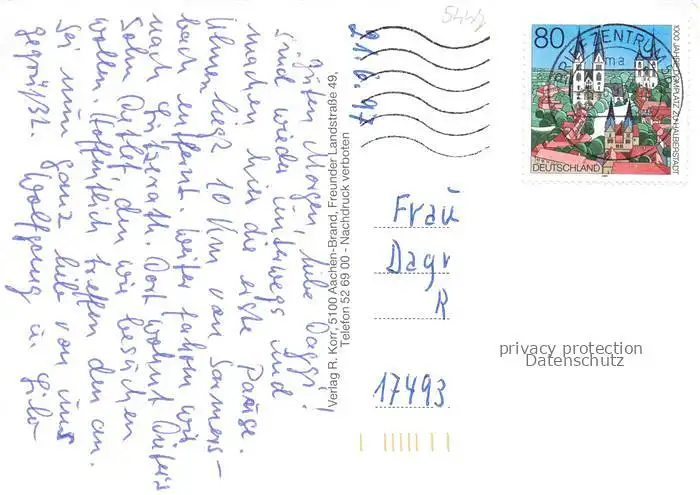 21.6.97
Guten Morgen, liebe Daggi!
Sind wieder unterwegs und
machen hier die erste Pause.
Ulmen liegt 10 Km von
bach entfernt. Weiter fahren wir
nach Lutzerath. Dort wohnt
Sohn Detlef, den wir besuchen
wollen. Hoffentlich treffen den an.
Sei nun ganz lieb von uns
gegrüßt. Wolfgang u.
Verlag R. Korr, 5100 Aachen-Brand, Freunder Landstraße 49,
Telefon 52 69 00 - Nachdruck verboten
BRIEFZENTRUM
ma
80
1000 JAHRE DOMPLATZ ZU HALBERSTADT
DEUTSCHLAND
Frau
Dagr
R
17493
privacy protection
Datenschutz